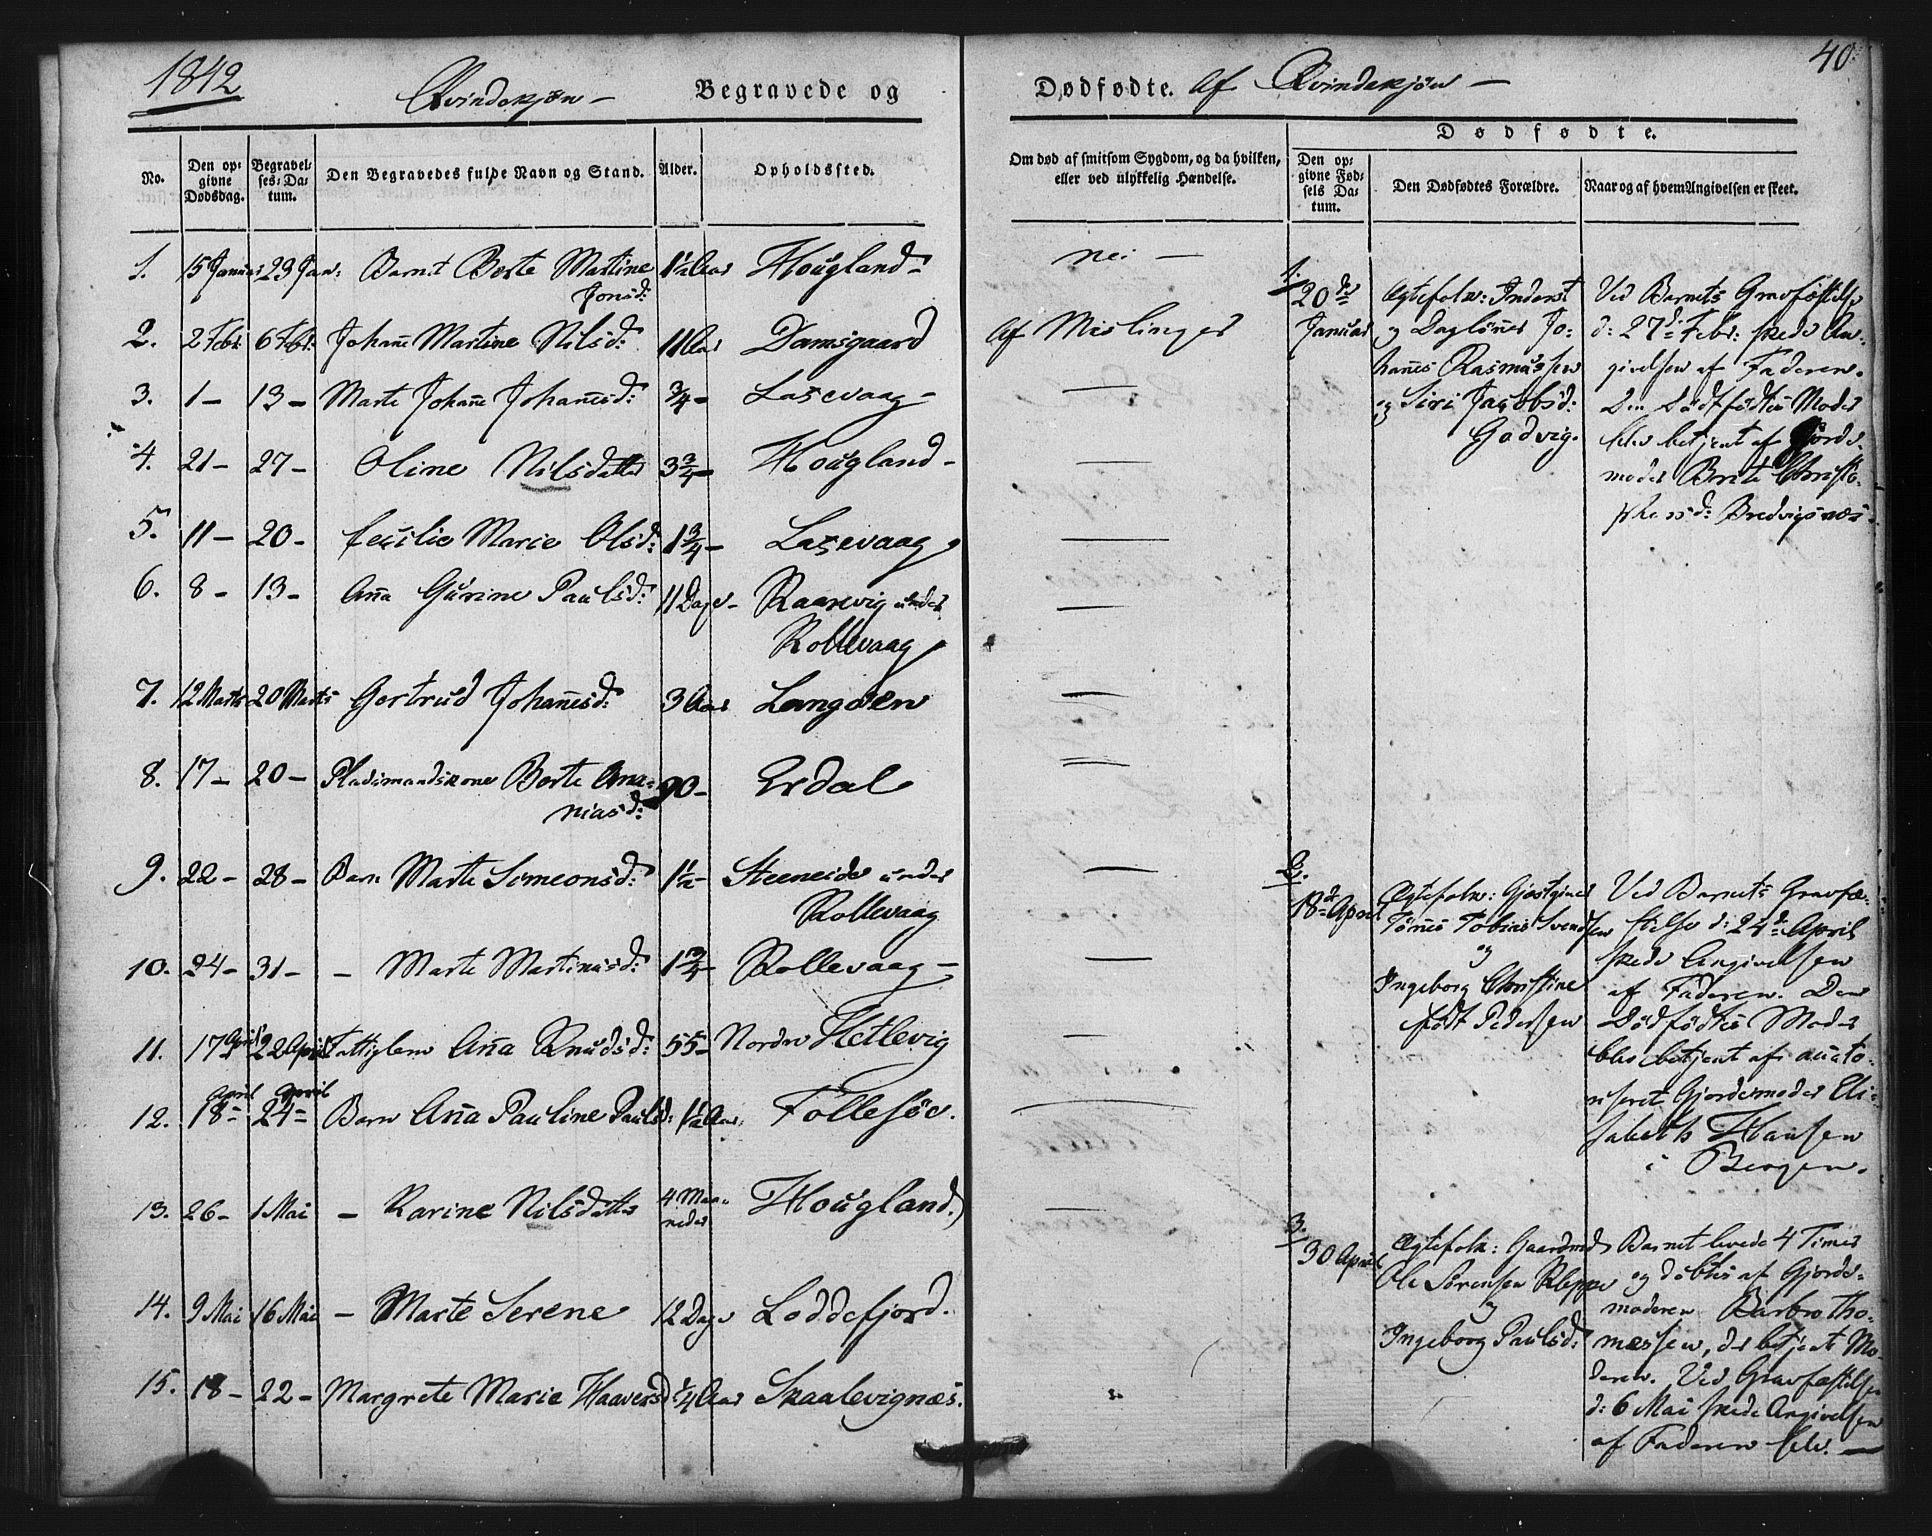 1842
Qvindekjøn – Begravede og Dødfødte. Af Qvindekjøn –
40.
No. | Den opgivne Dødsdag. | Begravelses-Datum. | Den Begravedes fulde Navn og Stand. | Alder. | Opholdssted. | Om død af smitsom Sygdom, og da hvilken, eller ved ulykkelig Hændelse.
1. 15 Januar 23 Jan: Barnet Berte Martine Jonsd: 1½ Aar Hougland – nei –
2. 2 Febr: 6 Febr: Johañe Martine Nilsd: 11 Aar Damsgaard Af Mæslinger
3. 1 – 13 – Marte Johañe Johañesd: ¾ – Laxevaag – —
4. 21 – 27 – Oline Nilsdatter 3¾ – Hougland – —
5. 11 – 20 – Cecilie Marie Olsd: 1¾ – Laxevaag. —
6. 8 – 13 – Aña Gurine Paulsd: 11 Dage – under —
Rollevaag
7. 12 Marts 20 Marts Gertrud Johañesd: 3 Aar Langøen —
8. 17 – 20 – Pladsmandskone Berte Ana-
niasd: 90 – Erdal —
9. 22 – 28 – Barn Marte Simeonsd: 1½ – Steeneide under —
Rollevaag
10. 24 – 31 – – Marte Martinusd: 1¾ – Rollevaag – —
11. 17 April 22 April Fattiglem Aña Knudsd: 55 – Nordre Hetlevig —
12. 18 April 24 April Barn Aña Pauline Paulsd: 1½ Aar: Follesøe. —
13. 26 – 1 Mai – Karine Nilsdatter 4 Maaneder Hougland. —
14. 9 Mai 16 Mai – Marte Serene 12 Dage Loddefjord.
15. 18 – 22 – Margrete Marie Haaversd: ¼ Aar Skaalevignæs. "
Dødfødte.
Den opgivne Fødsels Datum. | Den Dødfødtes Forældre. | Naar og af hvem Angivelsen er skeet.
1.
20de Januar
Ægtefolk: Inderst
og Dagløñer Jo-
hañes Rasmussen
og Siri Jacobsd:
Godvig.
Ved Barnets Gravfæstelse
d: 27d: Febr: skede An-
givelsen af Faderen.
Den Dødfødtes Moder
blev betjent af Gjorde-
moder Berte Christo-
phersd: Bredvigsnæs.
2.
18de April
Ægtefolk: Gjestgiver
Tønnes Tobias Svendsen
og
Ingeborg Christine
født Pedersen
Ved Barnets Gravfæ-
stelse d: 24de April
skede Angivelsen
af Faderen. Den
Dødfødtes Moder
blev betjent af aucto-
riseret Gjordemoder Eli-
sabeth Hansen
i Bergen.
3.
30 April
Ægtefolk: Gaardmd
Ole Sørensen Kleppe
og
Ingeborg Paulsd:
Barnet levede 4 Timer
og døbtes af Gjorde-
moderen Barbro Tho-
massen, der betjente Mo-
deren. Ved Gravfæstelsen
d: 6 Mai skede Angivelsen
af Faderen selv. —